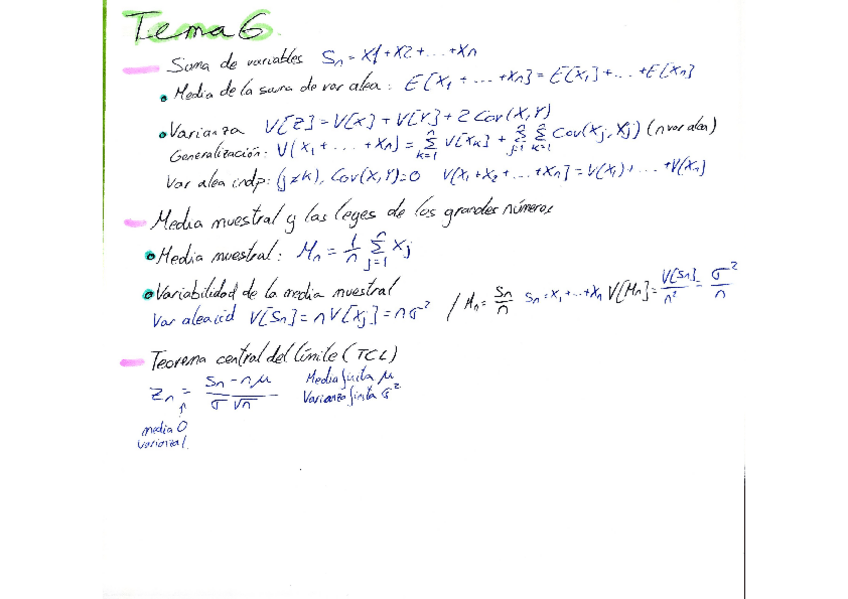 Tema 6
Suma de variables Sn = X1 + X2 + ... + Xn
Media de la suma de var alea: E[X1 + ... + Xn] = E[X1] + ... + E[Xn]
Varianza V[Z] = V[X] + V[Y] + 2 Cov(X,Y)
Generalización: V(X1 + ... + Xn) = Σ_{k=1}^{n} V[Xk] + Σ_{j=1}^{n} Σ_{k=1}^{n} Cov(Xj, Xj) (n var alea)
Var alea indp: (j≠k), Cov(X,Y)=0 V[X1 + X2 + ... + Xn] = V(X1) + ... + V(Xn)
Media muestral y las leyes de los grandes números
Media muestral: Mn = 1/n Σ_{j=1}^{n} Xj
Variabilidad de la media muestral
Var alea iid V[Sn] = n V[Xj] = nσ² / Mn = Sn/n Sn = X1 + ... + Xn V[Mn] = V[Sn]/n² = σ²/n
Teorema central del límite (TCL)
Zn = (Sn - nμ)/(σ√n) Media finita μ
Varianza finita σ²
media 0
varianza 1